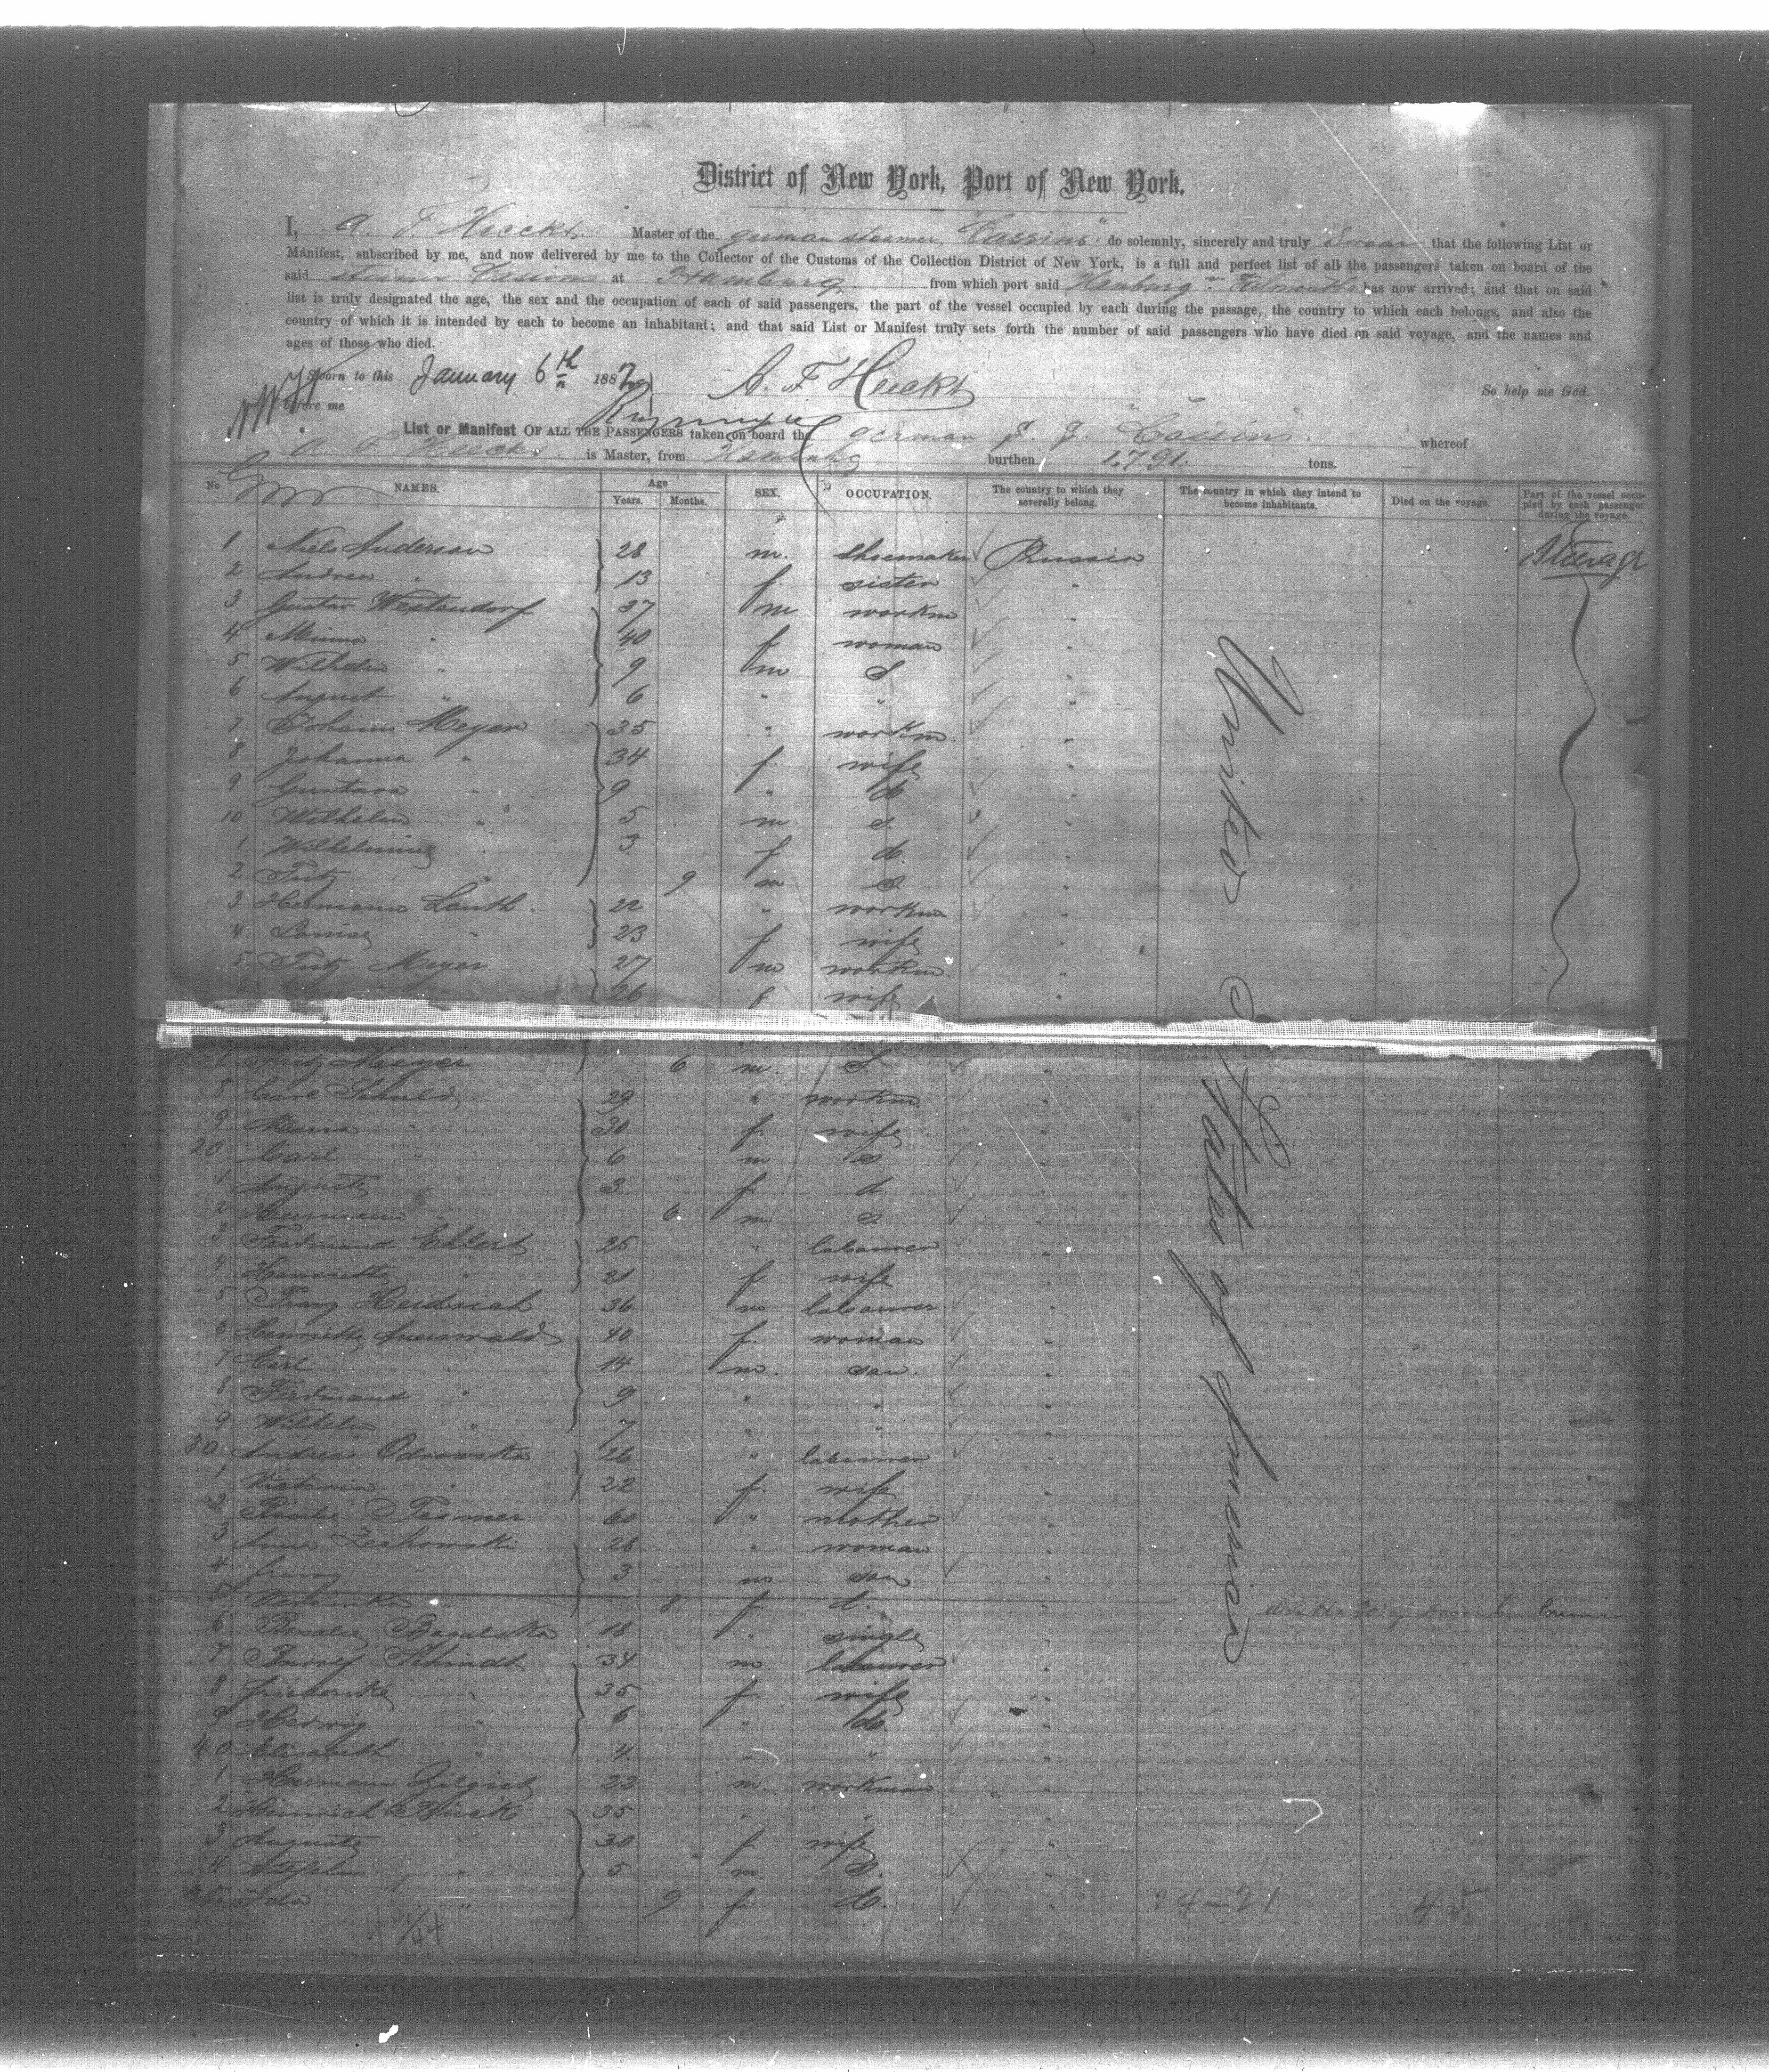 District of New York, Port of New York.
I, A. F. Heeckt Master of the german steamer "Cassius" do solemnly, sincerely and truly Swear that the following List or
Manifest, subscribed by me, and now delivered by me to the Collector of the Customs of the Collection District of New York, is a full and perfect list of all the passengers taken on board of the
said steamer Cassius at Hamburg from which port said Hamburg Falmouth has now arrived; and that on said
list is truly designated the age, the sex and the occupation of each of said passengers, the part of the vessel occupied by each during the passage, the country to which each belongs, and also the
country of which it is intended by each to become an inhabitant; and that said List or Manifest truly sets forth the number of said passengers who have died on said voyage, and the names and
ages of those who died.
Sworn to this January 6th 1882 A. F. Heeckt So help me God.
before me
List or Manifest OF ALL THE PASSENGERS taken on board the german Cassius whereof
A. F. Heeckt is Master, from Hamburg burthen 1,791. tons.
No NAMES. Age Years. Months. SEX. OCCUPATION. The country to which they severally belong. The country in which they intend to become inhabitants. Died on the voyage. Part of the vessel occupied by each passenger during the voyage.
1 Niels Anderson 28 m. shoemaker Prussia Steerage
2 Andrea " 13 f. sister "
3 Gustav Westendorf 37 m workm "
4 Minna " 40 f woman "
5 Wilhelm " 9 m S "
6 August " 6 " " "
7 Johann Meyer 35 " workm. "
8 Johanna " 34 f. wife "
9 Gustava " 9 " d. "
10 Wilhelm " 5 m s. "
1 Wilhelmine " 3 f d. "
2 Fritz " 9 m S. "
3 Hermann Lauth. 22 " workm "
4 Louise " 23 f wife "
5 Fritz Meyer 27 m workm. "
6 26 f wife "
7 Fritz Meyer 6 m. S. "
8 Carl Schuld 29 " workm. "
9 Maria " 30 f. wife "
20 Carl " 6 m s "
1 Auguste " 3 f. d. "
2 Herrmann " 6 m s "
3 Ferdinand Ehlert 25 " labourer "
4 Henriette " 21 f wife "
5 Franz Heidrich 36 m labourer "
6 Henriette Auerwald 40 f. woman "
7 Carl " 14 m. son. "
8 Ferdinand " 9 " " "
9 Wilhelm " 7 " " "
30 Andrea Odrowska 26 " labourer "
1 Victoria " 22 f. wife "
2 Rosalie Tesmer 60 " mother "
3 Anna Zechowski 28 " woman "
4 Franz " 3 m. son "
5 Veronika " 8 f. d. " died the 20 of December
6 Rosalie Bagalska 18 " single "
7 Schmidt 34 m. labourer "
8 Friederike " 35 f. wife "
9 Hedwig " 6 " d. "
40 Elisabeth " 4. " " "
1 Hermann Zilgist 22 m. workman "
2 Heinrich Bück 35 " " "
3 Auguste " 30 f wife "
4 Wilhelm " 5 m. S. "
45 Ida " 9 f. d. "
United States of America
24-21 45.